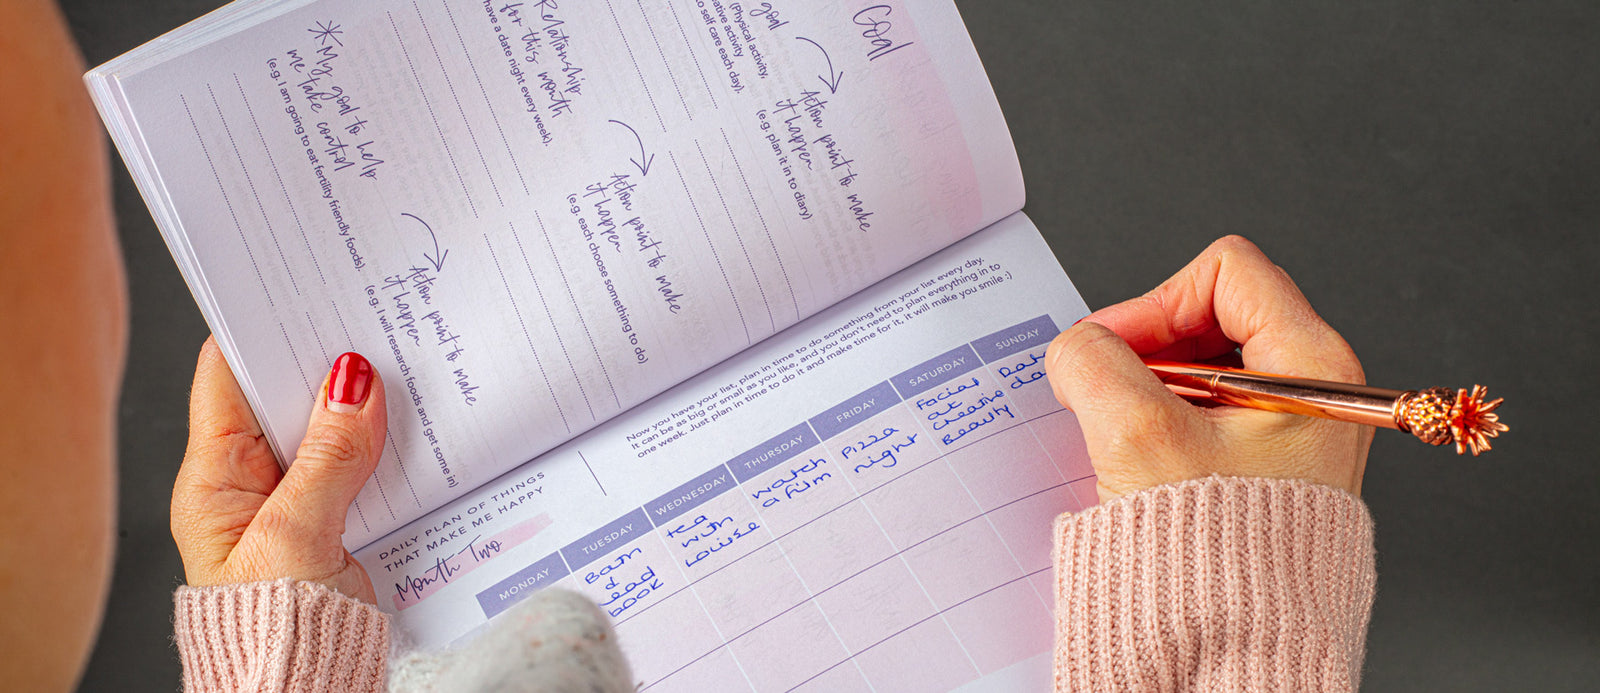 Goal
goal
(Physical activity,
activity
to self care each day).
Action point to make
it happen
(e.g. plan it in to diary)
Relationship
for this month
have a date night every week).
Action point to make
it happen
(e.g. each choose something to do)
*My goal to help
me take control
(e.g. I am going to eat fertility friendly foods).
Action point to make
it happen
(e.g. I will research foods and get some in)
DAILY PLAN OF THINGS
THAT MAKE ME HAPPY
Month Two
Now you have your list, plan in time to do something from your list every day.
It can be as big or small as you like, and you don't need to plan everything in to
one week. Just plan in time to do it and make time for it, it will make you smile :)
MONDAY
TUESDAY
WEDNESDAY
THURSDAY
FRIDAY
SATURDAY
SUNDAY
Bath
&
read
book
tea
with
Louise
watch
a film
Pizza
night
Facial
at
Creative
Beauty